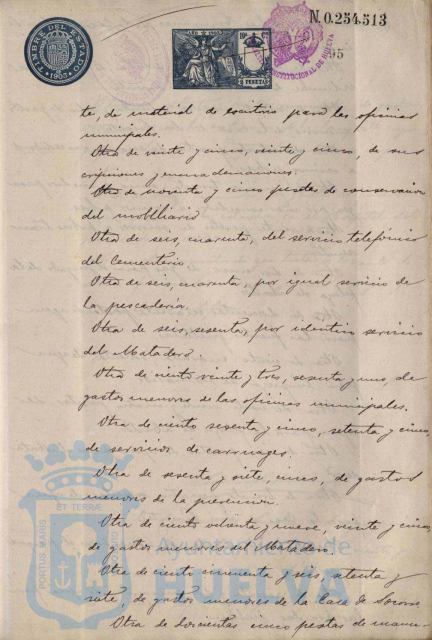 TIMBRE DEL ESTADO
1905
N.0.254.513
95
2 PESETAS
CONSTITUCIONAL DE HUELVA
te, de material de escritorio para las oficinas
municipales.
Otra de veinte y cinco, veinte y cinco, de sus
cripciones y encuadernaciones.
Otra de noventa y cinco pesetas de conservacion
del mobiliario
Otra de seis, cuarenta, del servicio telefónico
del Cementerio
Otra de seis, cuarenta, por igual servicio de
la pescaderia.
Otra de seis, sesenta, por identico servicio
del Matadero.
Otra de ciento veinte y tres, sesenta y uno, de
gastos menores de las oficinas municipales.
Otra de ciento sesenta y cinco, setenta y cinco,
de servicios de carruages.
Otra de sesenta y siete, cinco, de gastos
menores de la prevencion.
Otra de ciento ochenta y nueve, veinte y cinco,
de gastos menores del Matadero.
Otra de ciento cincuenta y seis, setenta y
siete, de gastos menores de la Casa de Socorro
Otra de doscientas cinco pesetas de manu-
PORTUS MARIS
ET TERRE
Ayuntamiento de
HUELVA